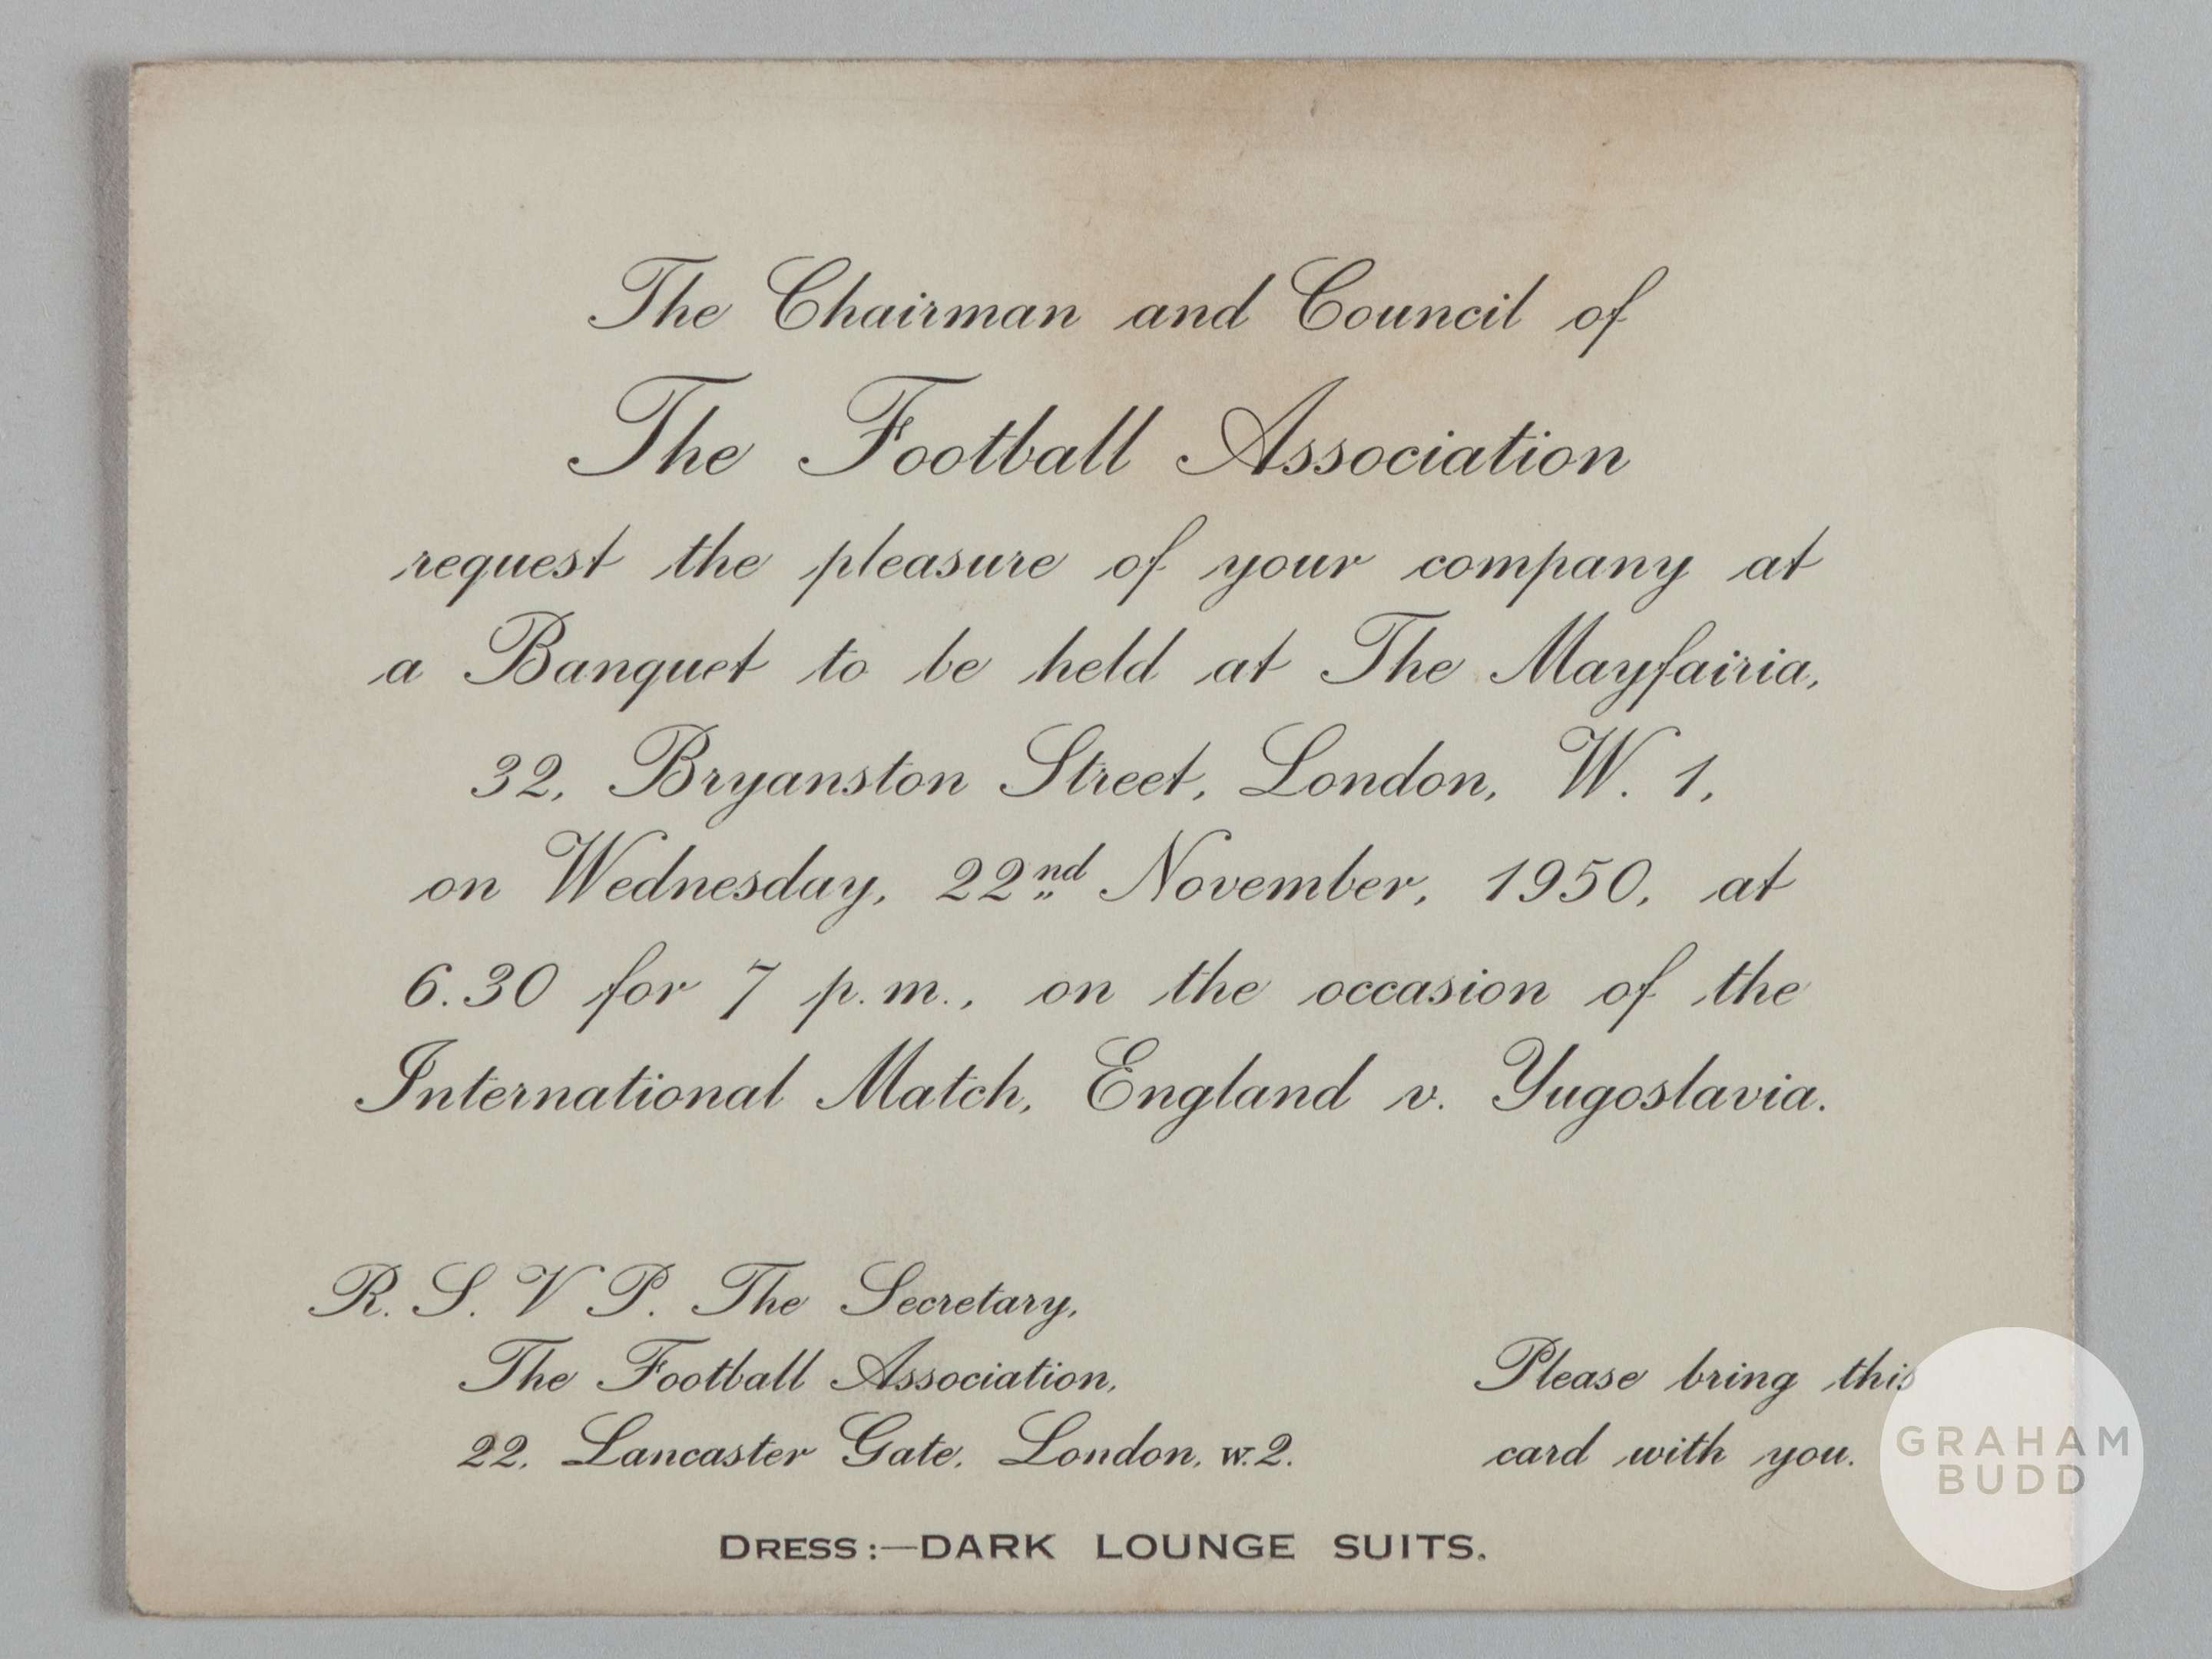 The Chairman and Council of
The Football Association
request the pleasure of your company at
a Banquet to be held at The Mayfairia,
32, Bryanston Street, London, W. 1,
on Wednesday, 22nd November, 1950, at
6.30 for 7 p.m., on the occasion of the
International Match, England v. Yugoslavia.
R. S. V P. The Secretary,
The Football Association,
22, Lancaster Gate, London, w.2.
Please bring this
card with you.
GRAHAM
BUDD
DRESS:—DARK LOUNGE SUITS.